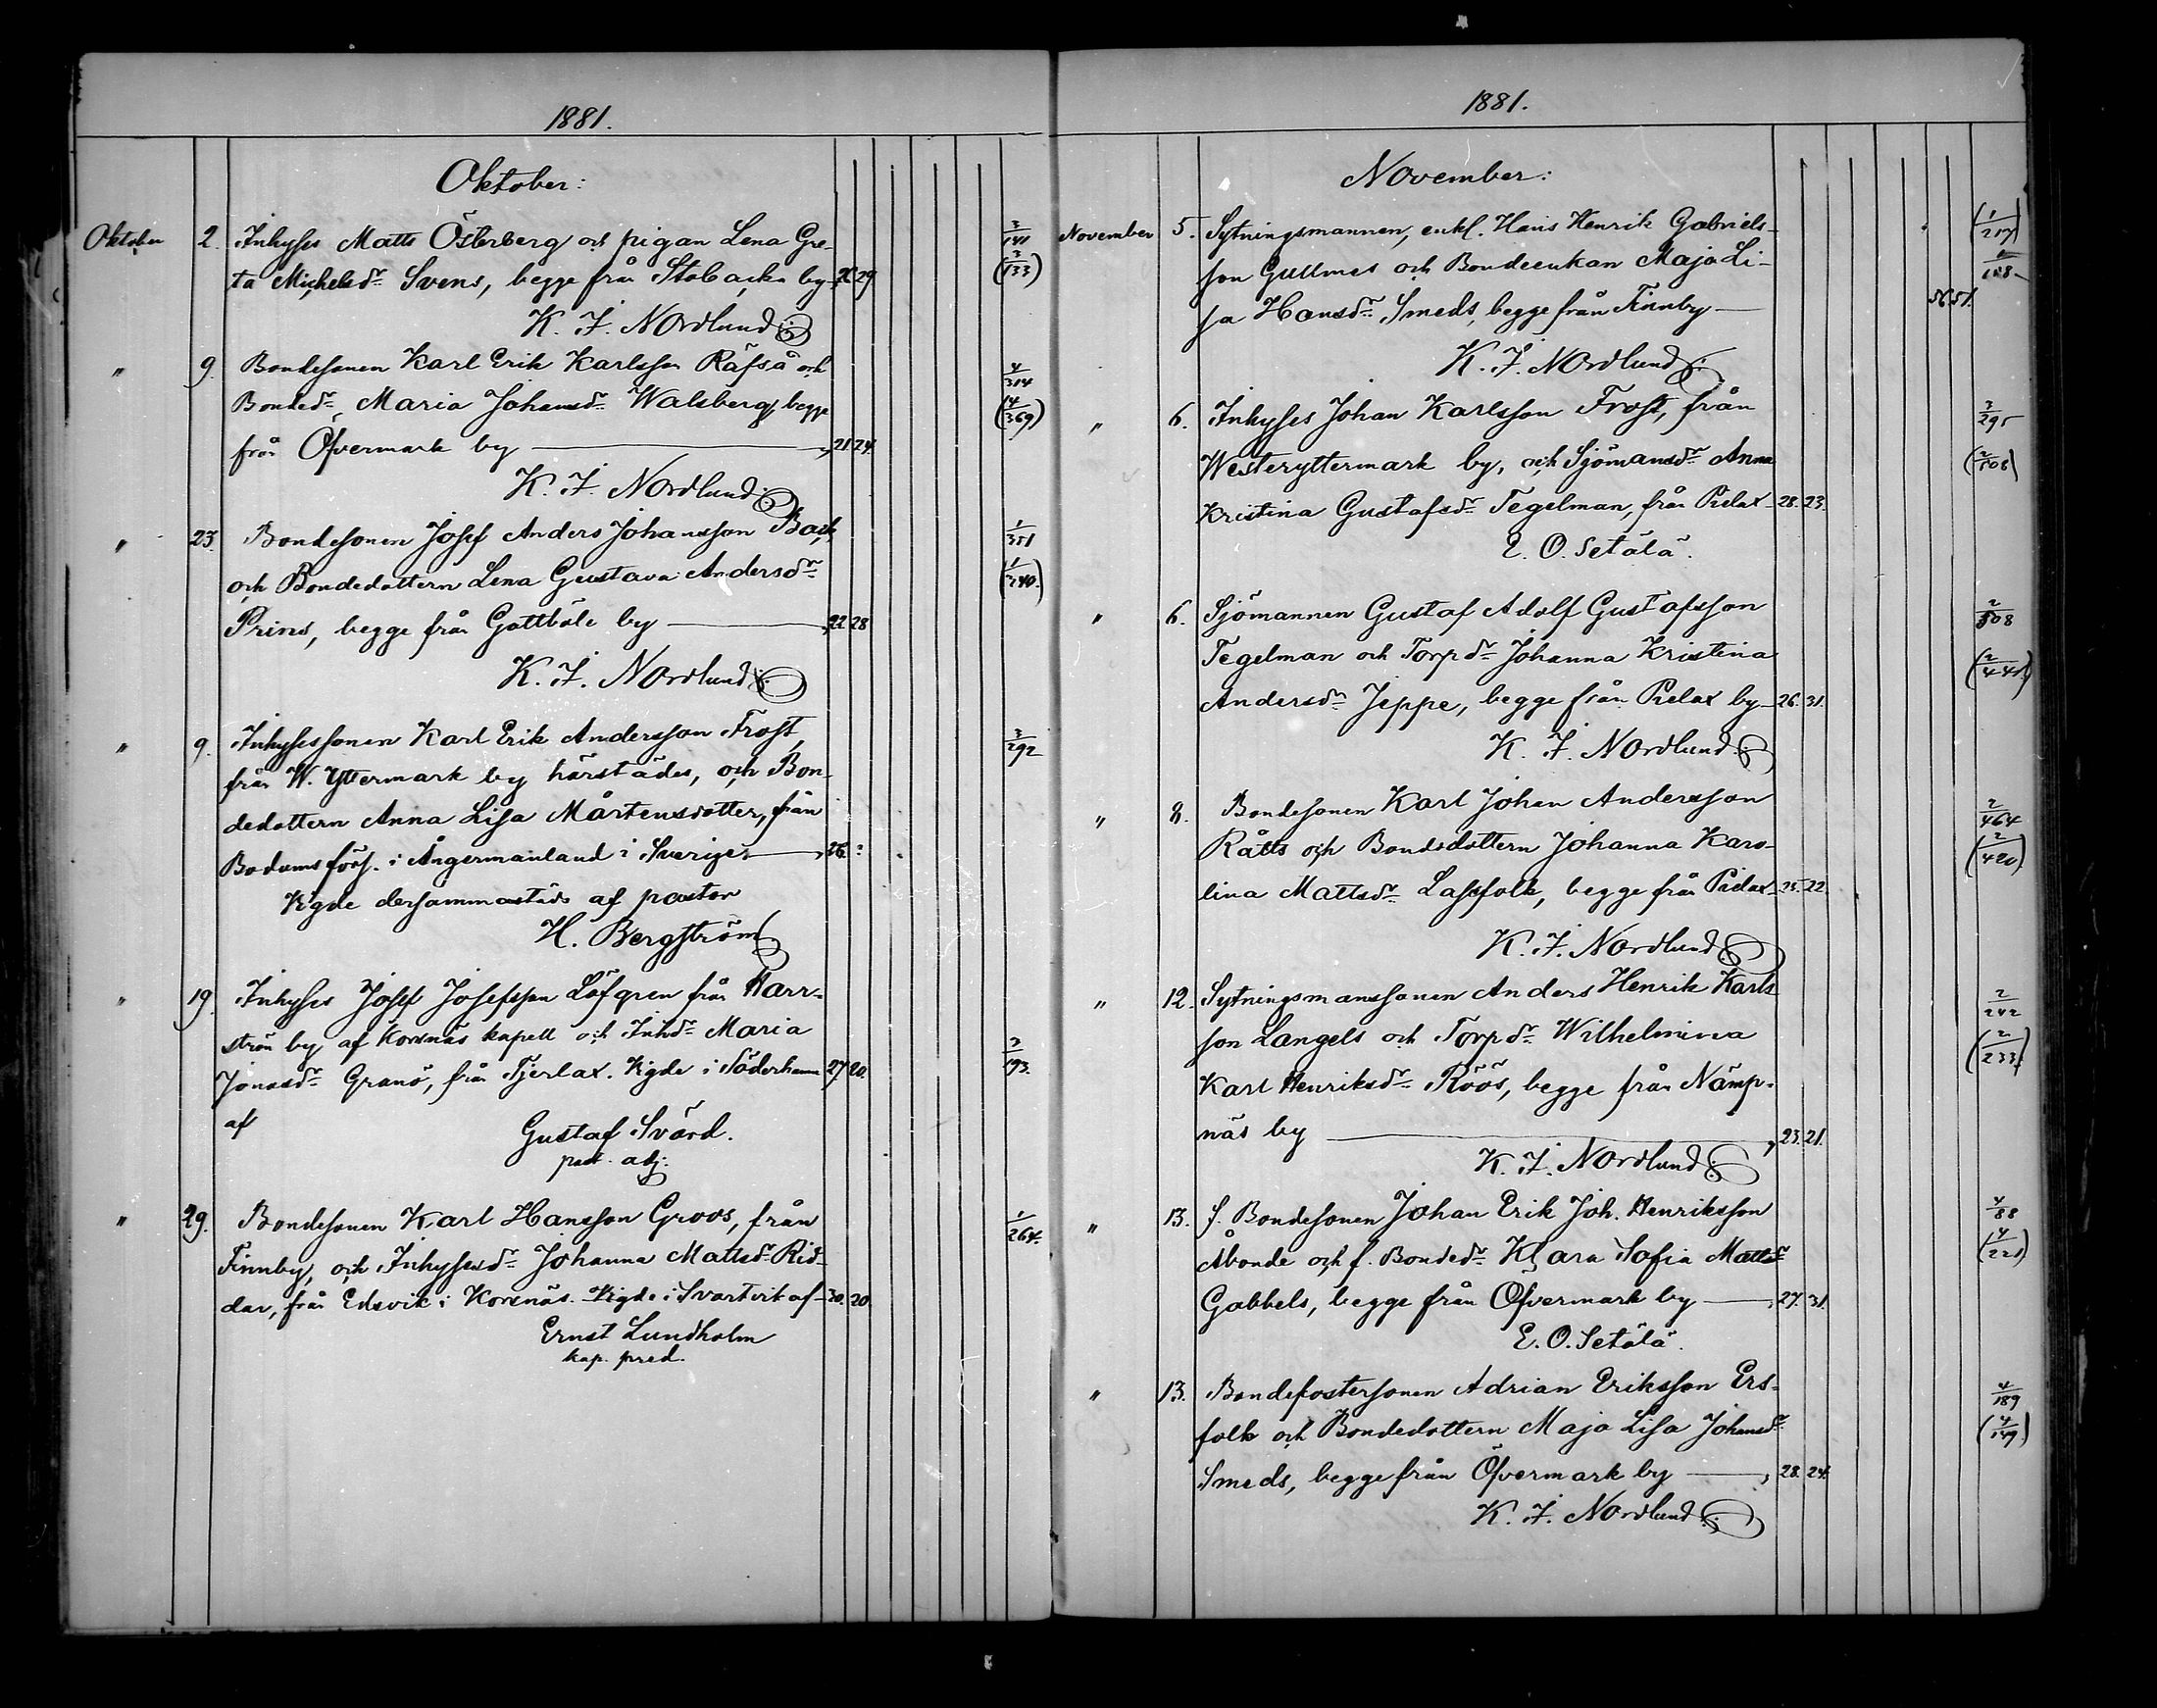 1881.
Oktober:
Oktober 2. Inhyses Matts Österberg och pigan Lena Gre- 3/141
ta Michelsdr Svens, begge från Stobacka by 29. (3/133)
K. J. Nordlund
" 9. Bondesonen Karl Erik Karlsson Räfså och 4/314
Bondedr Maria Johansdr Walsberg, begge (4/369)
från Öfvermark by 21 24.
K. J. Nordlund
" 23. Bondesonen Josef Anders Johansson Back, 1/351
och Bondedottern Lena Gustava Andersdr (1/340.)
Prins, begge från Gottböle by 22 28
K. J. Nordlund
" 9. Inhysessonen Karl Erik Andersson Frost, 3/292
från W. Yttermark by härstädes, och Bon-
dedottern Anna Lisa Mårtensdotter, från
Bodums förs. i Ångermanland i Sverige 26. ?
Vigde dersammastäds af pastor
H. Bergström
" 19 Inhyses Josef Josefsson Löfgren från Harr-
ström by af Korsnäs kapell och Inhdr Maria
Jonasdr Granö, från Tjerlax. Vigde i Söderhamn 27 20. 2/93.
af
Gustaf Svärd.
past. adj.
" 29. Bondesonen Karl Hansson Groos, från 1/264.
Finnby, och Inhysesdr Johanna Mattsdr Rid-
dar, från Edsvik i Korsnäs. Vigde i Svartvik af 30. 20.
Ernst Lundholm
kap. pred.
1881.
November:
November 5. Sytningsmannen, enkl. Hans Henrik Gabriels-
son Gullmes och Bondeenkan Maja Li-
sa Hansdr Smeds, begge från Finnby 56 51.
K. J. Nordlund
" 6. Inhyses Johan Karlsson Frost, från 3/295
Westeryttermark by, och Sjömansdr Anna (2/508)
Kristina Gustafsdr Tegelman, från Pielax 28. 23.
E. O. Setälä.
" 6. Sjömannen Gustaf Adolf Gustafsson 2/508
Tegelman och Torpdr Johanna Kristina
Andersdr Jeppe, begge från Pielax by 26. 31.
K. J. Nordlund
" 8. Bondesonen Karl Johan Andersson 2/464
Rätts och Bondedottern Johanna Karo- (2/420)
lina Mattsdr Lassfolk, begge från Pielax 25. 22.
K. J. Nordlund
" 12. Sytningsmanssonen Anders Henrik Karls 2/242
son Langels och Torpdr Wilhelmina (2/233)
Karl Henriksdr Röös, begge från Nämp-
näs by 23. 21.
K. J. Nordlund
" 13. f. Bondesonen Johan Erik Joh. Henriksson 4/88
Åbonde och f. Bondedr Klara Sofia Mattsdr (4/221)
Gabbels, begge från Öfvermark by 27. 31.
E. O. Setälä.
" 13. Bondefostersonen Adrian Eriksson Ers- 4/189
folk och Bondedottern Maja Lisa Johansdr (4/149)
Smeds, begge från Öfvermark by 28. 24.
K. J. Nordlund